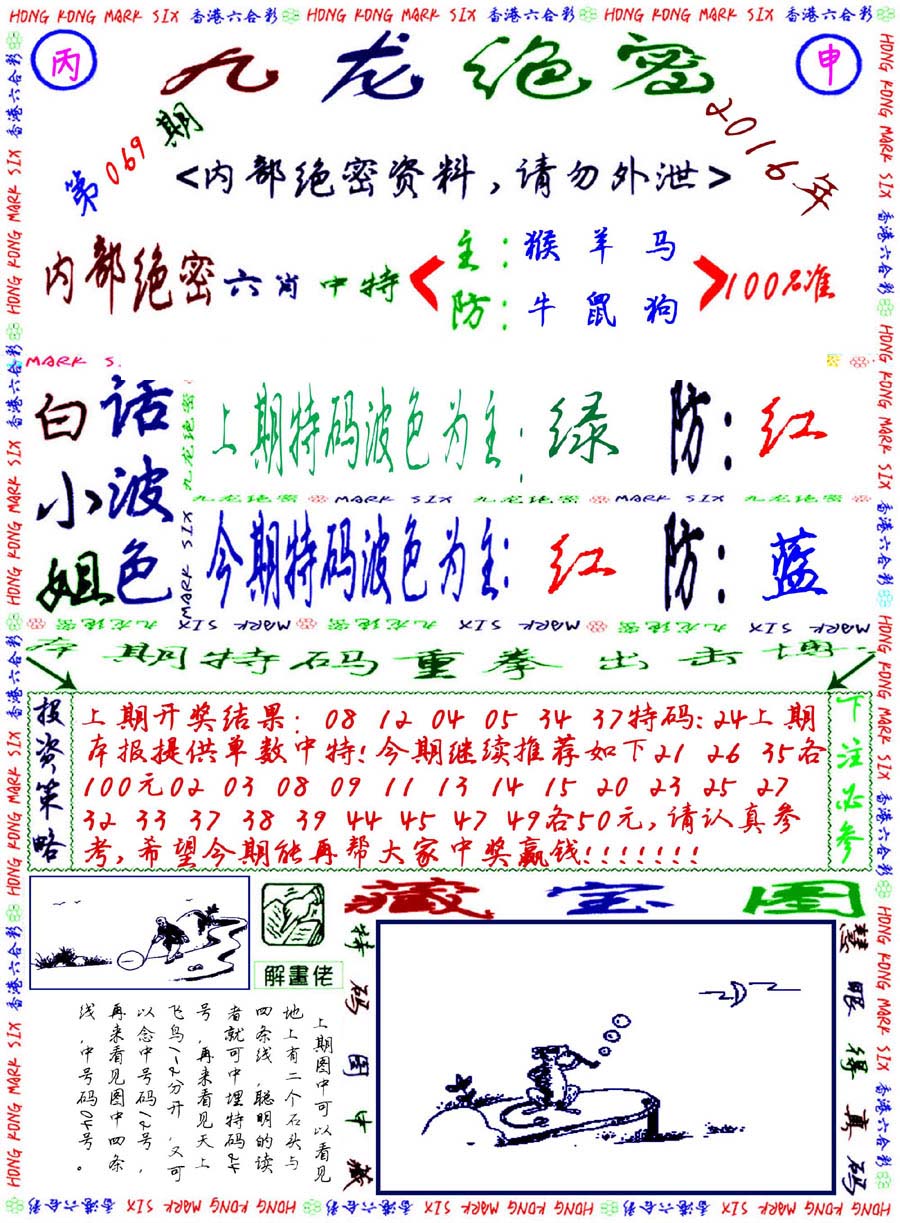 HONG KONG MARK SIX 香港六合彩 HONG KONG MARK SIX 香港六合彩 HONG KONG MARK SIX 香港六合彩
丙
九龙绝密
申
第069期
2016年
<内部绝密资料,请勿外泄>
内部绝密六肖中特
主:猴 羊 马
防:牛 鼠 狗
100%准
MARK S.
白话小波姐色
九龙绝密
MARK SIX
上期特码波色为主:绿 防:红
九龙绝密 MARK SIX 九龙绝密 MARK SIX 九龙绝密
今期特码波色为主:红 防:蓝
MARK SIX 九龙绝密 MARK SIX 九龙绝密 MARK SIX 九龙绝密
本期特码重拳出击博
投资策略
上期开奖结果: 08 12 04 05 34 37特码:24上期
本报提供单数中特!今期继续推荐如下21 26 35各
100元02 03 08 09 11 13 14 15 20 23 25 27
32 33 37 38 39 44 45 47 49各50元,请认真参
考,希望今期能再帮大家中奖赢钱!!!!!!!
下注必参
藏宝图
解畫佬
特码图中藏
慧眼得真码
上期图中可以看见
地上有二个石头与
四条线,聪明的读
者就可中埋特码24
号,再来看见天上
飞鸟1/2分开,又可
以念中号码12号,
再来看见图中四条
线,中号码04号。
HONG KONG MARK SIX 香港六合彩 HONG KONG MARK SIX 香港六合彩 HONG KONG MARK SIX 香港六合彩